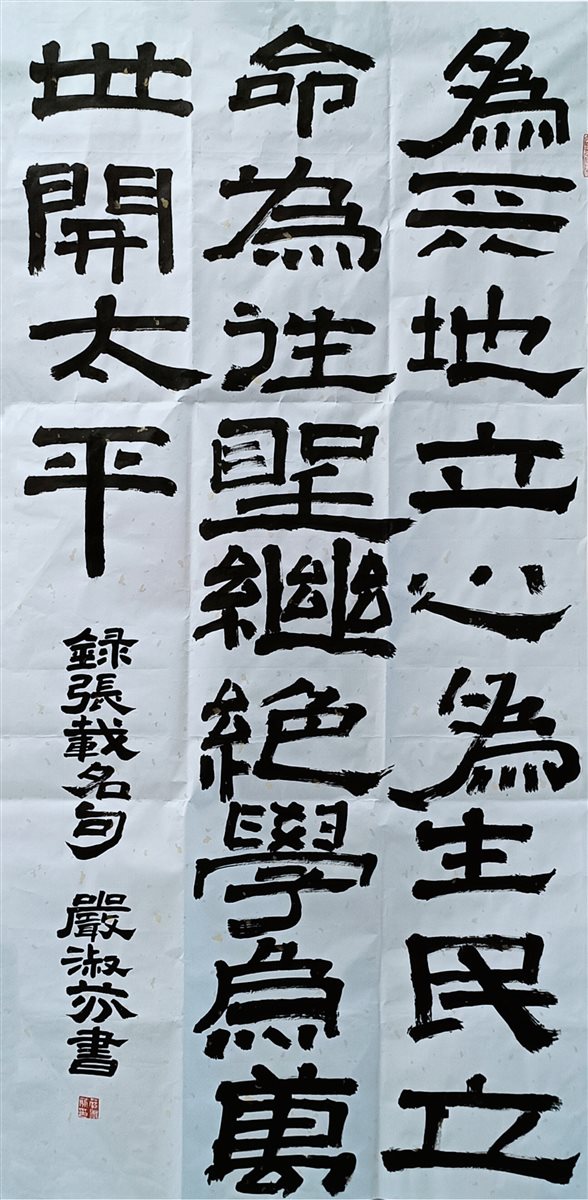 為天地立心為生民立
命為往聖繼絕學為萬
世開太平
録張載名句 嚴淑書